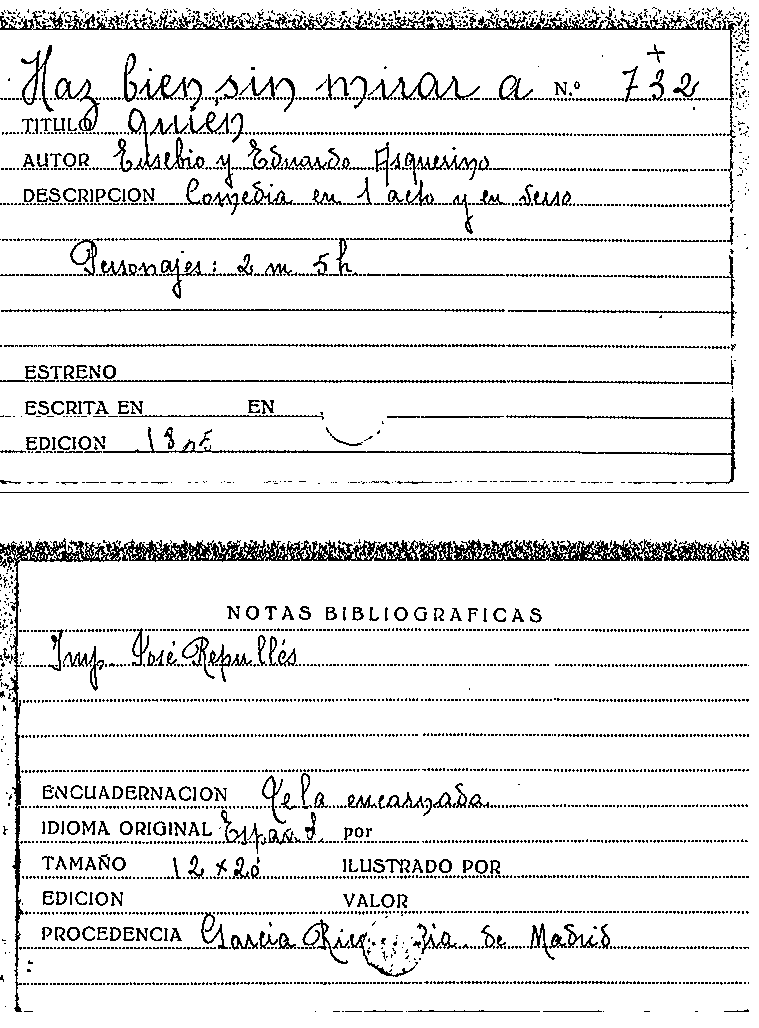 Haz bien, sin mirar a N.º 732
TITULO quien
AUTOR Eusebio y Eduardo Asquerino
DESCRIPCION Comedia en 1 acto y en verso
Personajes: 2 m 5 h
ESTRENO
ESCRITA EN EN
EDICION
NOTAS BIBLIOGRAFICAS
Imp. José Repullés
ENCUADERNACION Tela encarnada
IDIOMA ORIGINAL Español por
TAMAÑO 12 x 20 ILUSTRADO POR
EDICION VALOR
PROCEDENCIA Garcia de Madrid